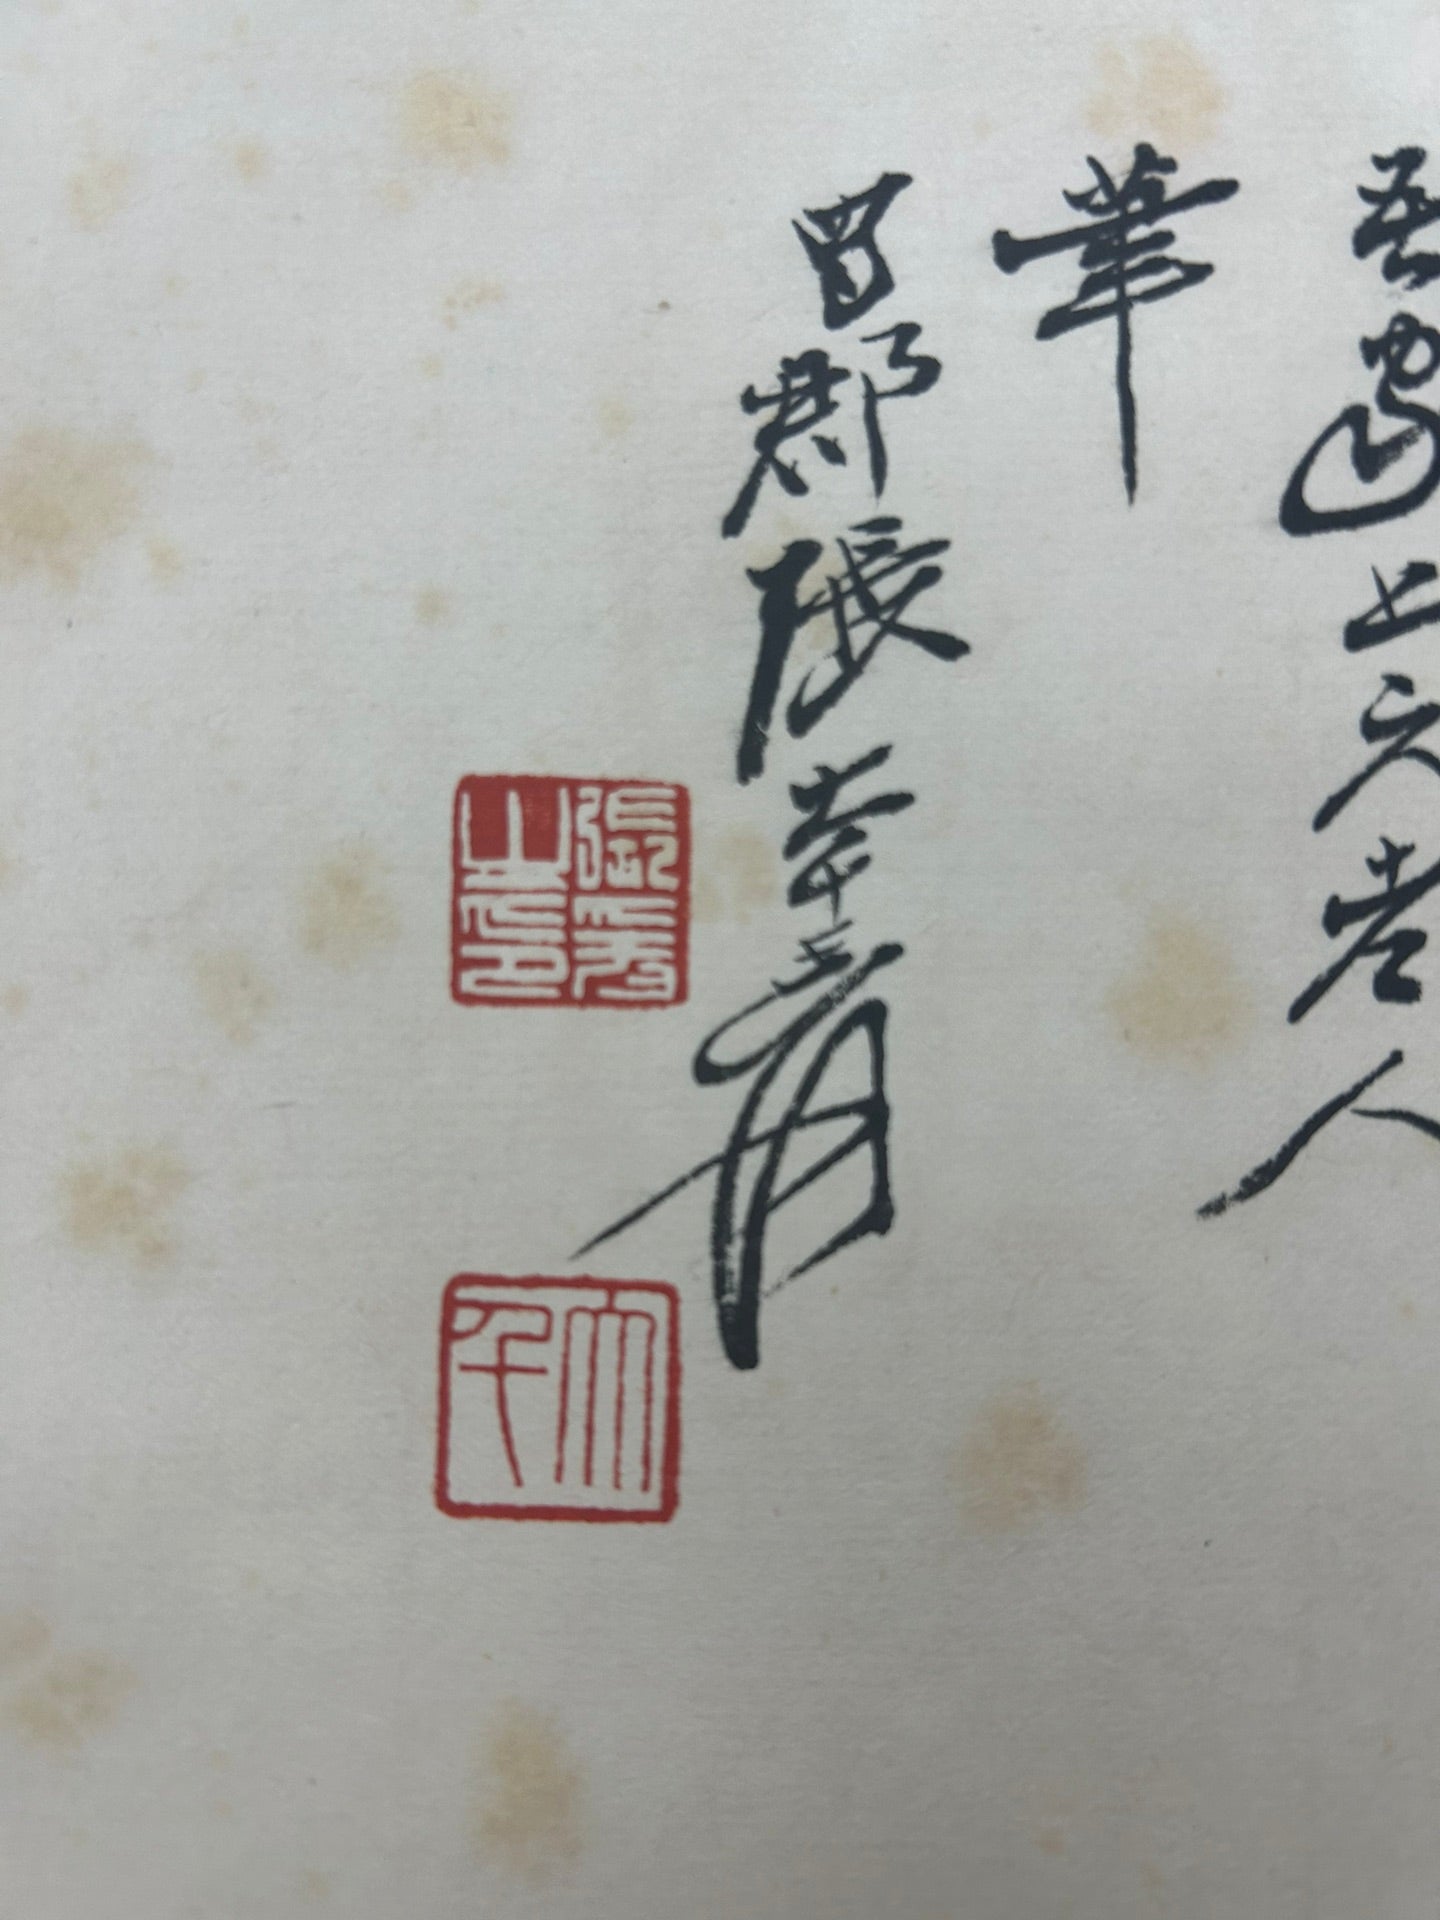 吾家上元老人
筆
蜀郡張大千爰
張爰之印
大千